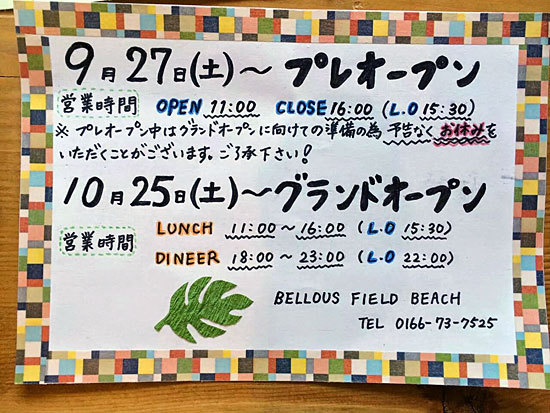 9月27日(土)～ プレオープン
営業時間 OPEN 11:00 CLOSE 16:00 (L.O 15:30)
※ プレオープン中はグランドオープンに向けての準備の為 予告なく お休みを
いただくことがございます。ご了承下さい!
10月25日(土)～グランドオープン
営業時間
LUNCH 11:00～16:00 (L.O 15:30)
DINEER 18:00～23:00 (L.O 22:00)
BELLOUS FIELD BEACH
TEL 0166-73-7525